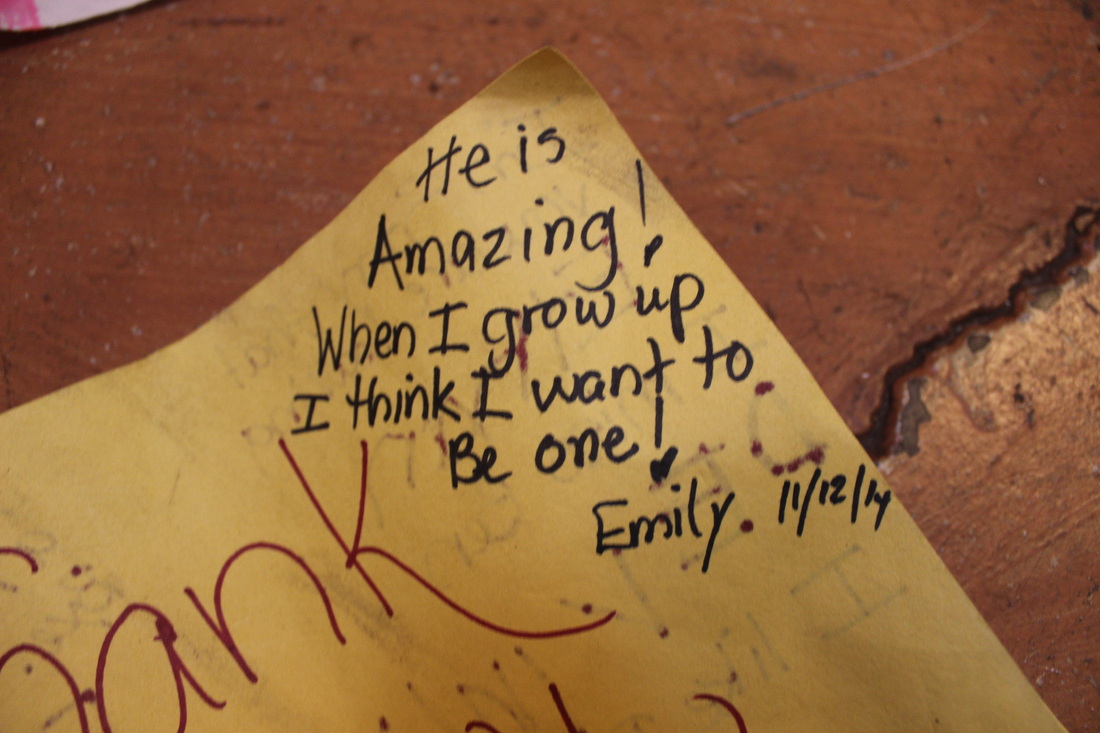 He is
Amazing!
When I grow up
I think I want to
Be one!
Emily. 11/12/14
ank